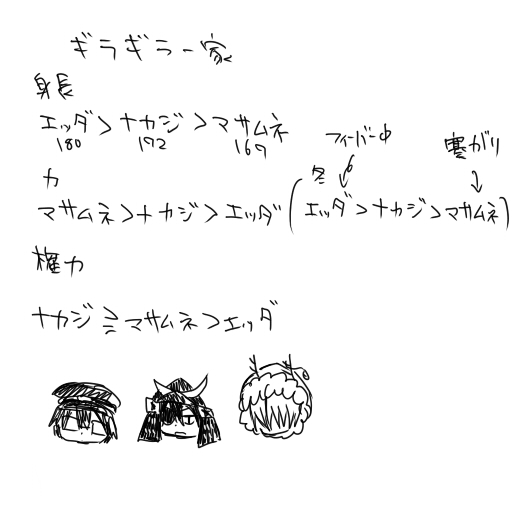 ギラギラ一家
身長
エッダ>ナカジ>マサムネ
180 172 169
力
フィーバー中 寒がり
マサムネ>ナカジ>エッダ(冬 エッダ>ナカジ>マサムネ)
権力
ナカジ≧マサムネ>エッダ